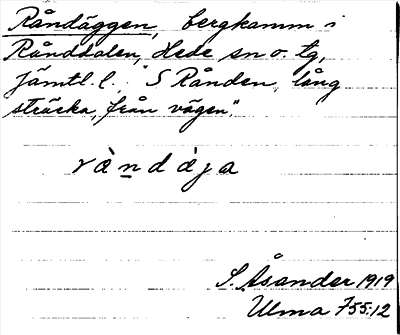 Råndäggen, bergkamm i
Rånddalen, Hede sn o. tg,
Jämtl. l., "S Rånden, lång
sträcka, från vägen".
rån̲dája
S. Åsander 1919
Ulma 755:12